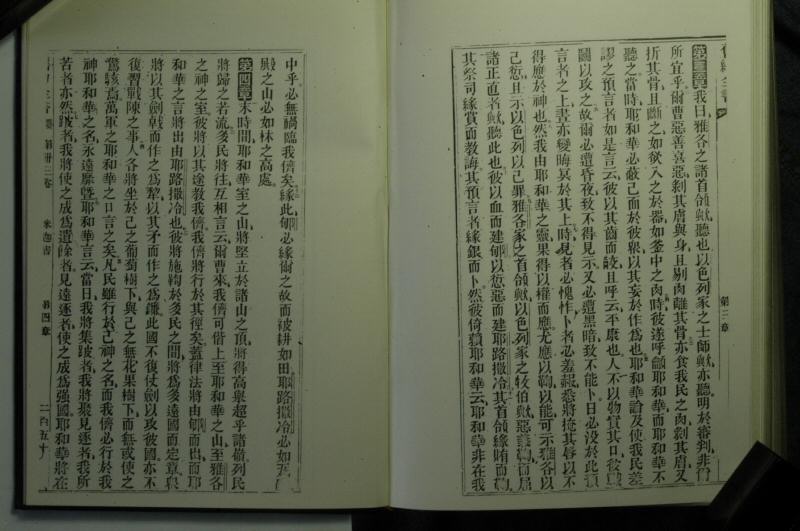 舊約全書
第三章
第三章 我曰、雅各之諸首領歟、聽也、以色列家之士師歟、亦聽、明於審判、非們
所宜乎、爾曹惡善喜惡、剝其膚與身、且剔肉離其骨、亦食我民之肉、剝其膚、又
折其骨、且斷之、如欲入之於器、如釜中之肉、時彼遂呼籲耶和華、而耶和華不
聽之、當時耶和華必蔽己面於彼輩、以其妄於作爲也、耶和華論及使我民差
謬之預言者如是言云、彼以其齒而齩、且呼云、平康也、人不以物實其口、彼
圖以攻之、故爾必遭昏夜、致不得見示、又必遭黑暗、致不能卜、日必沒於此預
言者之上、晝亦變晦冥於其上、時見者必愧怍、卜者必羞赧、悉將掩其唇、以不
得應於神也、然我由耶和華之靈、果得以權而應、尤應以鞫、以能、可示雅各以
己愆、且示以色列以己罪、雅各家之首領歟、以色列家之牧伯歟、惡鞫而屈
諸正直者歟、聽此也、彼以血而建郇、以愆惡而建耶路撒冷、其首領緣賄而鞫、
其祭司緣賞而教誨、其預言者緣銀而卜、然彼倚賴耶和華云、耶和華非在我
中乎、必無禍臨我儕矣、緣此郇必緣爾之故而被耕如田、耶路撒冷必如
殿之山必如林之高處
第四章 末時間、耶和華室之山將堅立於諸山之頂、將得高舉超乎諸礅、列民
將歸之若流、多民將往、互相言云、爾曹來、我儕可偕上至耶和華之山、至雅各
之神之室、彼將以其途教我儕、我儕將行於其徑矣、蓋律法將由郇而出、而耶
和華之言將出由耶路撒冷也、彼將施鞫於多民之間、將爲多遠國而定章、與
將以其劍戟而作之爲犂、以其矛而作之爲鐮、此國不復仗劍以攻彼國、亦不
復習戰陳之事、人各將坐於己之葡萄樹下、與己之無花果樹下、而無或使之
驚駭焉、萬軍之耶和華之口言之矣、凡民雖行於己神之名、而我儕必行於我
神耶和華之名、永遠靡曁、耶和華言云、當日我將集跛者、我將聚見逐者、我所
苦者亦然、跛者我將使之成爲遺餘者、見遠逐者使之成爲强國、耶和華將在
第卅三卷
米迦書
第四章
二百五十